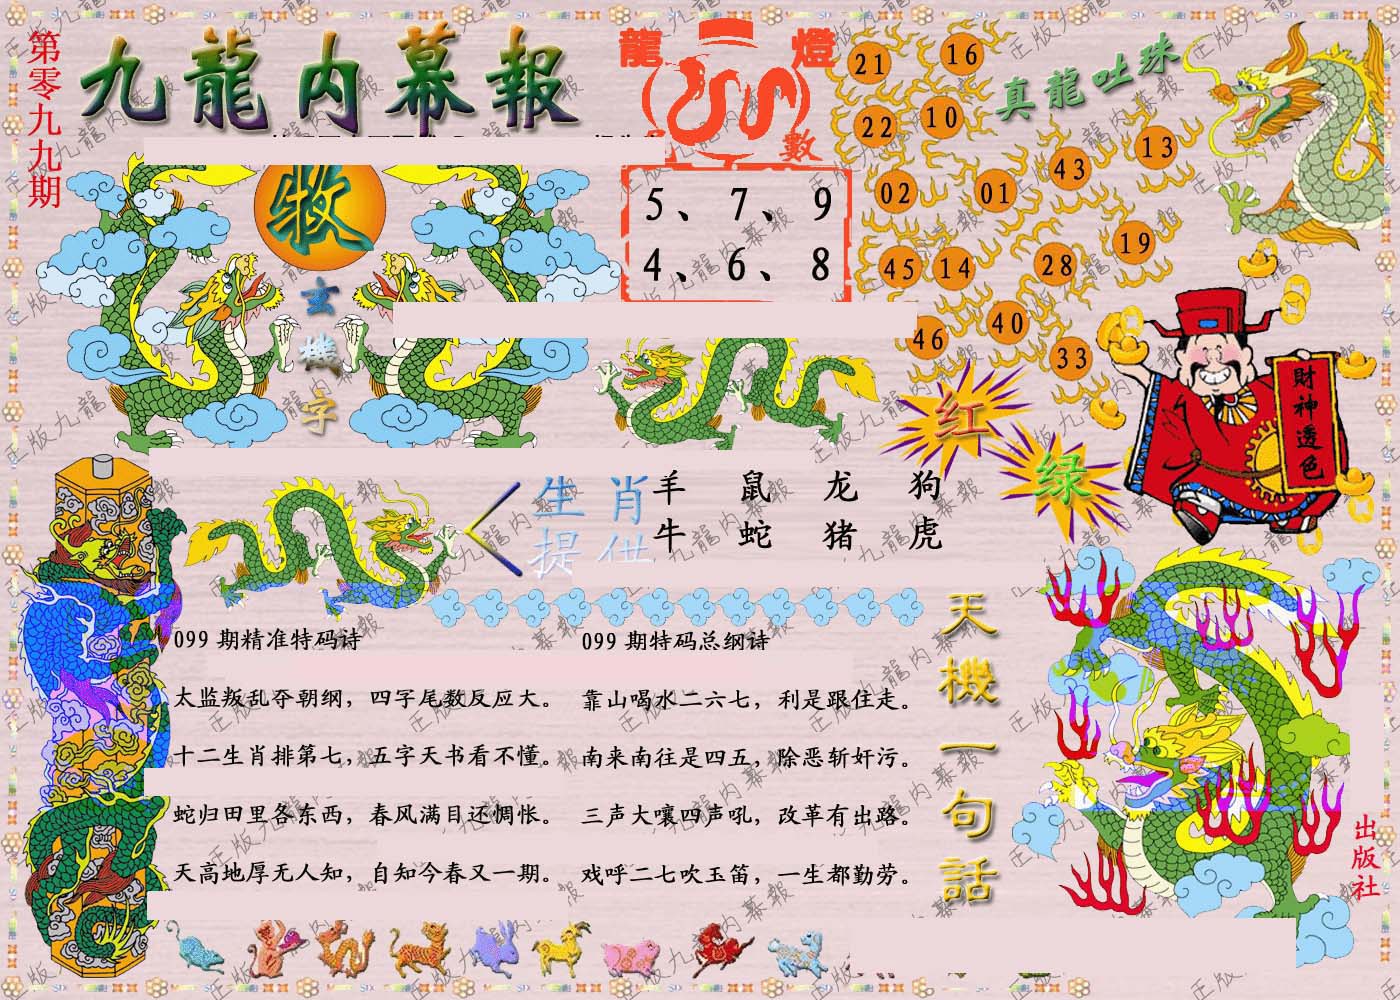 第零九九期
九龍内幕報
龍燈
數
5、7、9
4、6、8
真龍吐珠
21
16
22
10
13
43
02
01
19
45
14
28
40
46
33
玄機字
红
绿
財神透色
生肖
羊 鼠 龙 狗
牛 蛇 猪 虎
099 期精准特码诗
太监叛乱夺朝纲，四字尾数反应大。
十二生肖排第七，五字天书看不懂。
蛇归田里各东西，春风满目还惆怅。
天高地厚无人知，自知今春又一期。
099 期特码总纲诗
靠山喝水二六七，利是跟住走。
南来南往是四五，除恶斩奸污。
三声大嚷四声吼，改革有出路。
戏呼二七吹玉笛，一生都勤劳。
天機一句話
出版社
正版九龍内幕報